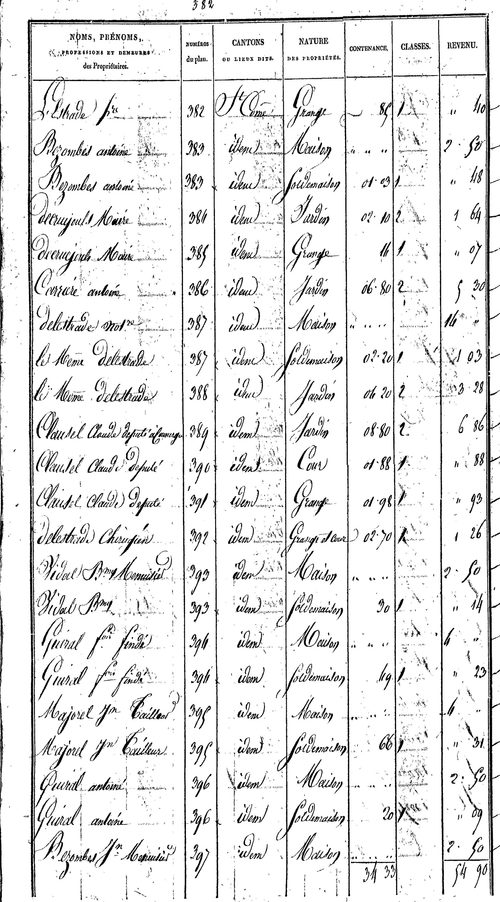 382
NOMS, PRÉNOMS, PROFESSIONS ET DEMEURES des Propriétaires. NUMÉROS du plan. CANTONS OU LIEUX DITS. NATURE DES PROPRIÉTÉS. CONTENANCE. CLASSES. REVENU.
Lestrade 382 St Come Grange 85 1 " 40
Bezombes antoine 383 idem Maison " " " 2 50
Bezombes antoine 383 idem Soldemaison 01 03 1 " 48
Maire 384 idem Jardin 02 10 2 1 64
Maire 385 idem Grange 14 1 " 07
antoine 386 idem Jardin 06 80 2 5 30
delestrade 387 idem Maison 14
le Meme delestrade 387 idem Soldemaison 02 20 1 1 03
le Meme delestrade 388 idem Jardin 04 20 2 3 28
Clausel Claude deputé 389 idem Jardin 08 80 2 6 86
Clausel Claude deputé 390 idem Cour 01 88 1 " 88
Clausel Claude deputé 391 idem Grange 01 98 1 " 93
delestrade Chirugien 392 idem Grange et cour 02 70 1 1 26
Vidal Menuisié 393 idem Maison " " " 2 50
Vidal 393 idem Soldemaison 30 1 " 14
Guiral 394 idem Maison 4 "
Guiral 394 idem Soldemaison 49 1 " 23
Majorel Jn Tailleur 395 idem Maison 4 "
Majorel Jn Tailleur 395 idem Soldemaison 66 1 " 31
Guiral antoine 396 idem Maison 2 50
Guiral antoine 396 idem Soldemaison 20 1 " 09
Bezombes Jn Menuisié 397 idem Maison 2 50
34 33 54 90